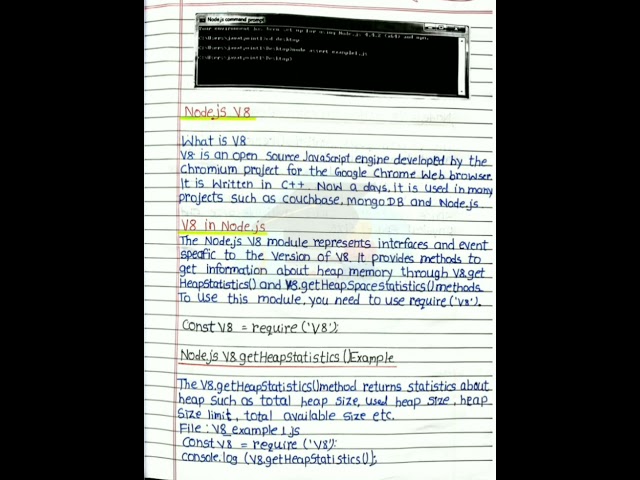 Node.js command prompt
Your environment has been set up for using Node.js 4.4.2 (x64) and npm.
C:\Users\javatpoint1>cd desktop
C:\Users\javatpoint1\Desktop>node assert_example1.js
C:\Users\javatpoint1\Desktop>
Node.js V8
What is V8
V8 is an open source JavaScript engine developed by the
Chromium project for the Google Chrome Web browser.
It is written in C++ Now a days, it is used in many
projects such as couchbase, MongoDB and Node.js
V8 in Node.js
The Node.js V8 module represents interfaces and event
specific to the version of V8. It provides methods to
get information about heap memory through V8.get
HeapStatistics() and V8.getHeapSpaceStatistics() methods.
To use this module, you need to use require ('V8').
Const V8 = require ('V8');
Node.js V8.getHeapStatistics () Example
The V8.getHeapStatistics() method returns statistics about
heap such as total heap size, used heap size, heap
size limit, total available size etc.
File : V8_example 1.js
Const V8 = require ('V8);
console.log (V8.getHeapStatistics());